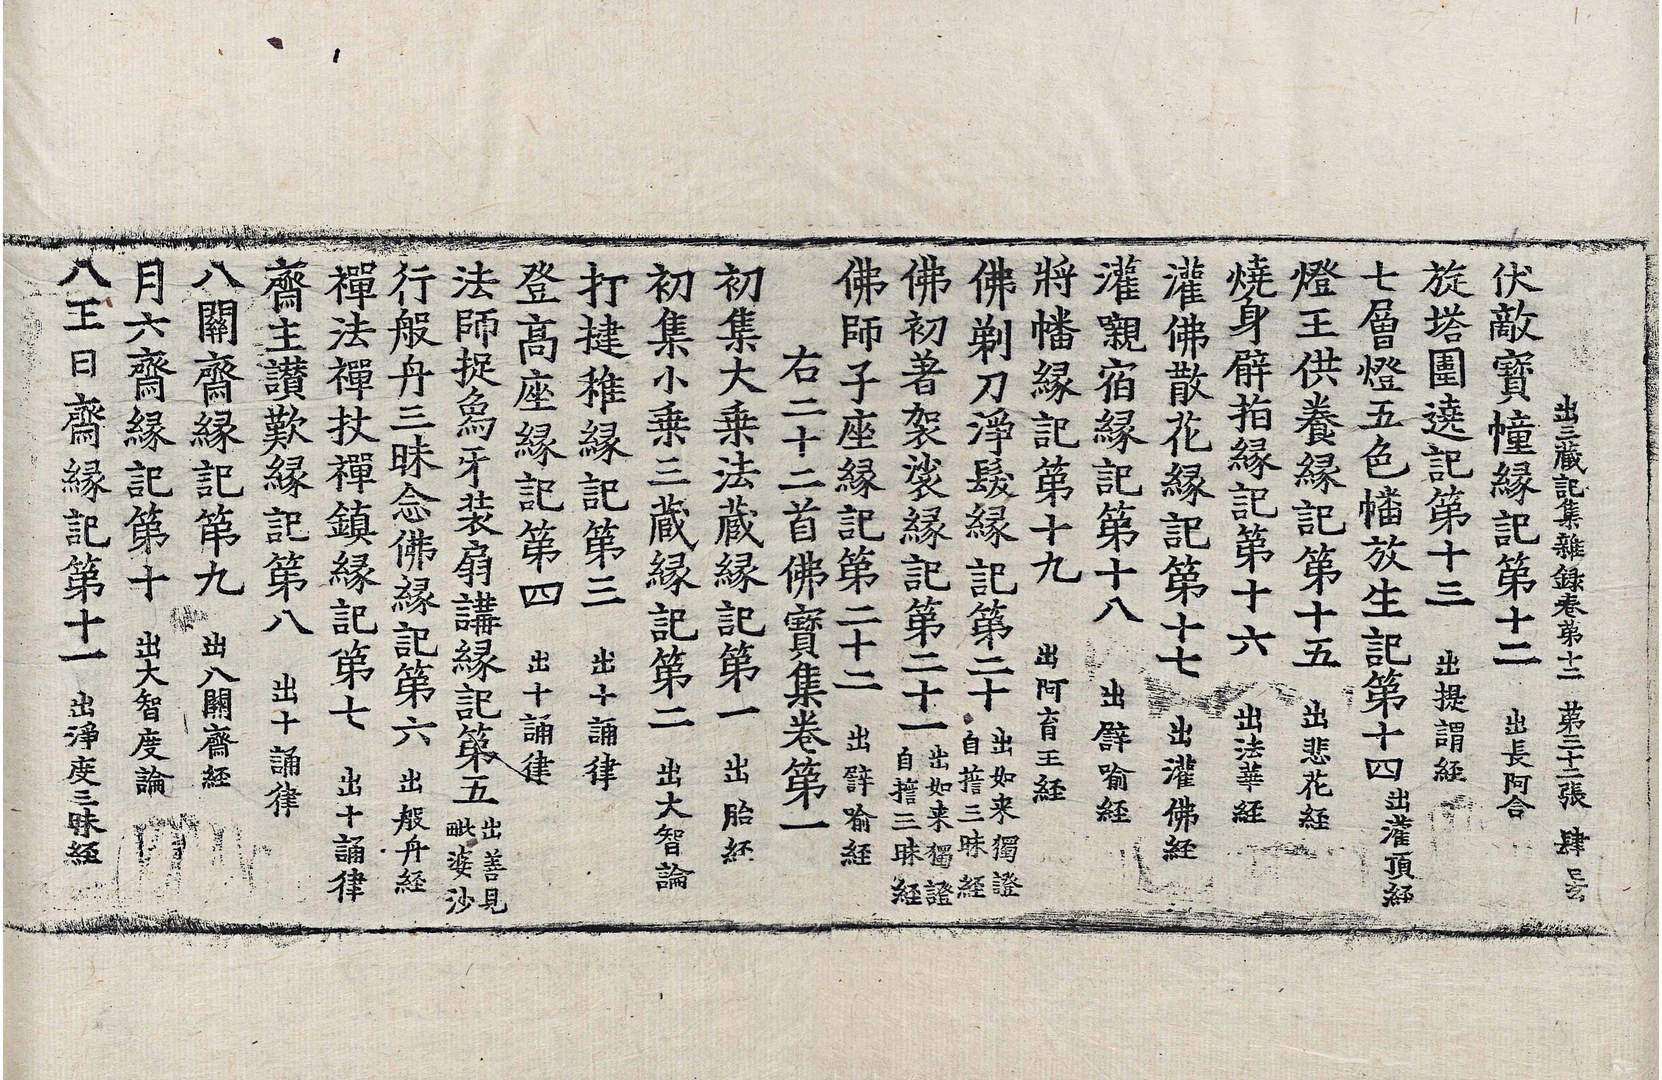 出三藏記集雜録卷第十二　第三十二張　肆号
伏敵寶幢縁記第十二　出長阿含
旋塔圍遶記第十三　出提謂經
七層燈五色幡放生記第十四　出灌頂經
燈王供養縁記第十五　出悲花經
燒身臂拍縁記第十六　出法華經
灌佛散花縁記第十七　出灌佛經
灌嚫宿縁記第十八　出譬喻經
將幡縁記第十九　出阿育王經
佛剃刀淨髮縁記第二十　出如来獨證自擔三昧經
佛初著袈裟縁記第二十一　出如来獨證自擔三昧經
佛師子座縁記第二十二　出譬喻經
右二十二首佛寶集卷第一
初集大乗法蔵縁記第一　出胎經
初集小乗三蔵縁記第二　出大智論
打揵稚縁記第三　出十誦律
登髙座縁記第四　出十誦律
法師捉象牙装扇講縁記第五　出善見毗婆沙
行般舟三昧念佛縁記第六　出般舟經
禪法禪杖禪鎮縁記第七　出十誦律
齋主讃歎縁記第八　出十誦律
八關齋縁記第九　出八關齋經
月六齋縁記第十　出大智度論
八王日齋縁記第十一　出淨度三昧經